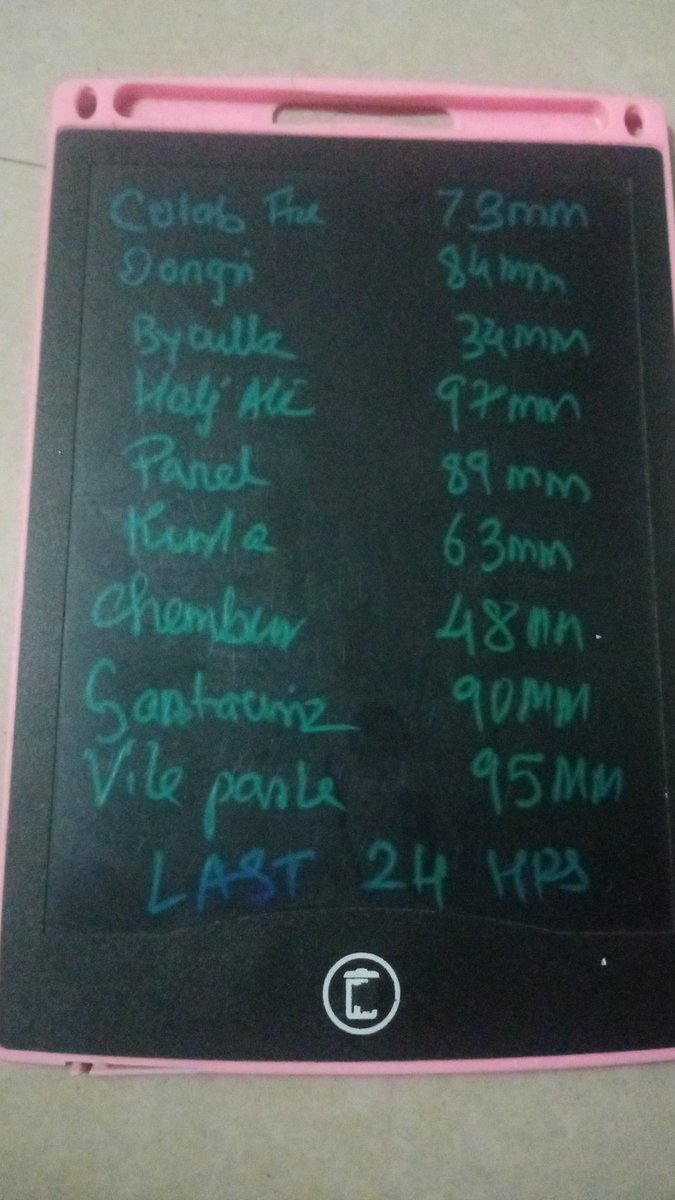 Colab Fire 73mm
Dongri 84mm
Byculla 34mm
Halj Ali 97mm
Parel 89mm
Kurla 63mm
Chembur 48mm
Santacruz 90MM
Vile parle 95MM
LAST 24 HRS